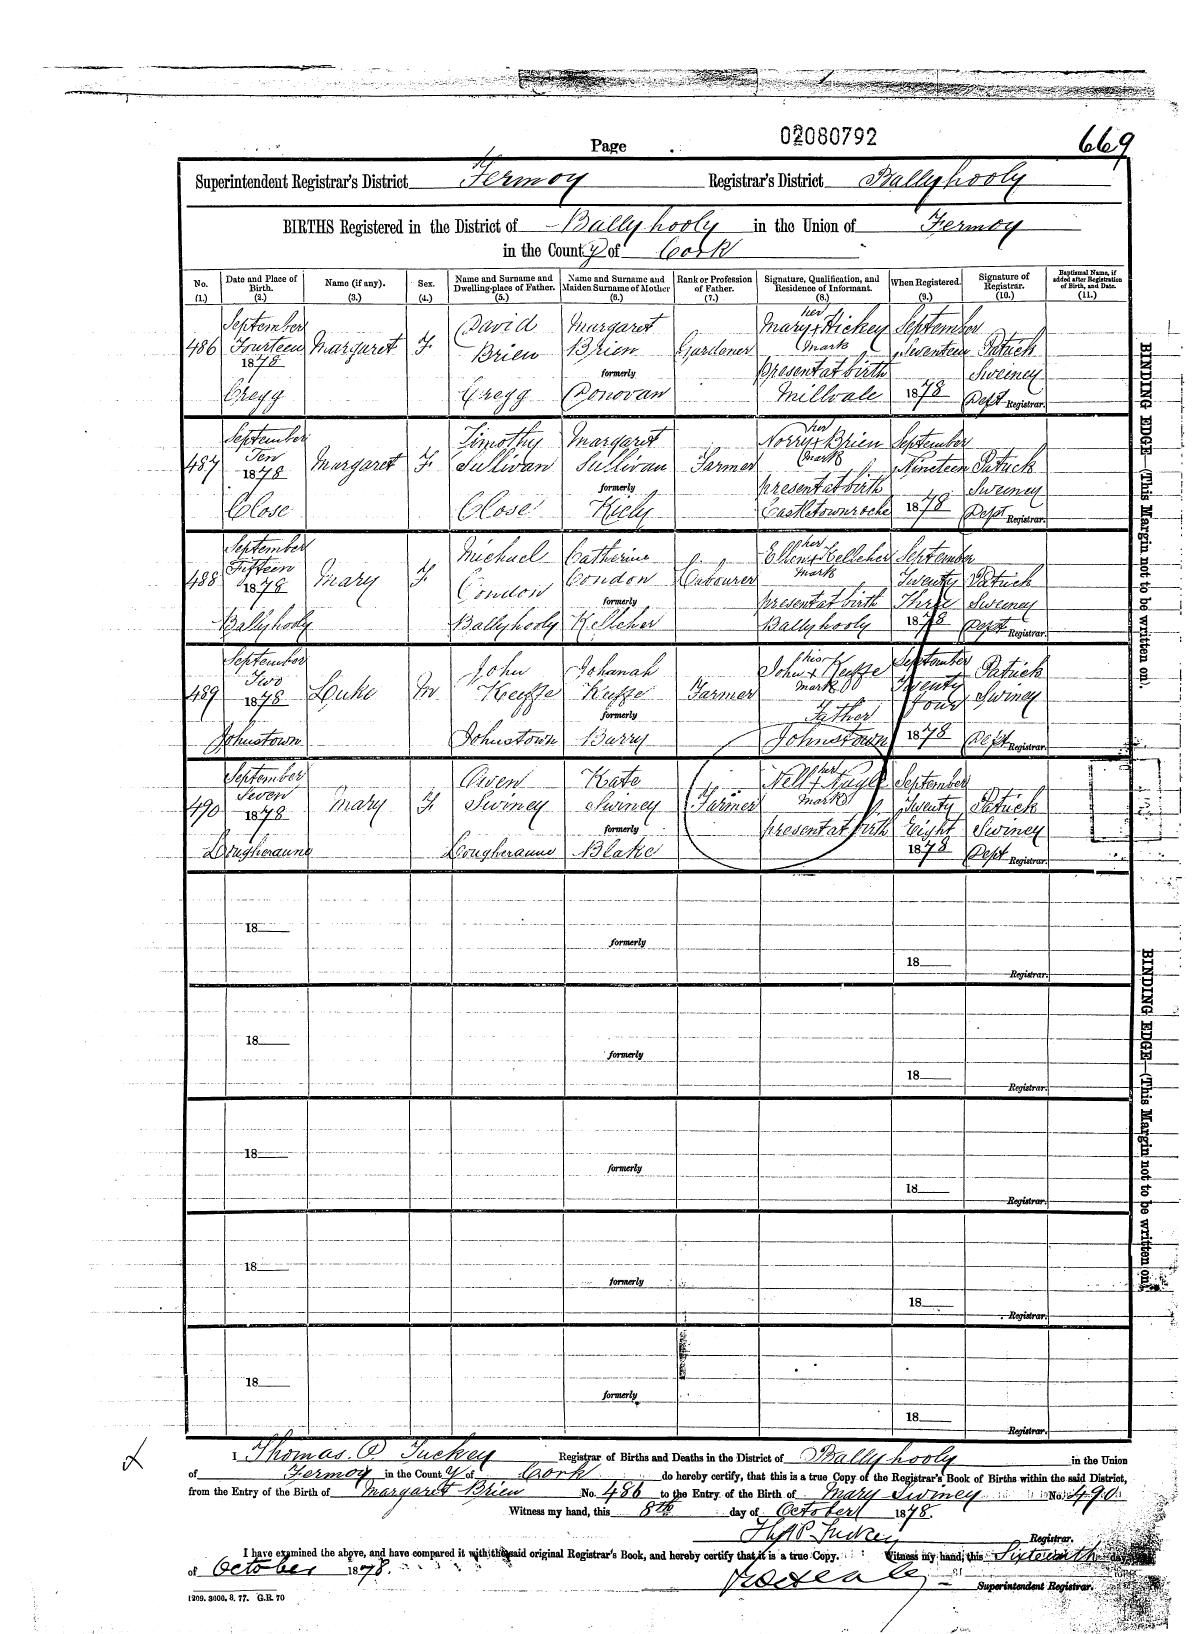 Page 02080792 669
Superintendent Registrar's District Fermoy Registrar's District Ballyhooly
BIRTHS Registered in the District of Ballyhooly in the Union of Fermoy
in the County of Cork
No. (1.) Date and Place of Birth. (2.) Name (if any). (3.) Sex. (4.) Name and Surname and Dwelling-place of Father. (5.) Name and Surname and Maiden Surname of Mother (6.) Rank or Profession of Father. (7.) Signature, Qualification, and Residence of Informant. (8.) When Registered. (9.) Signature of Registrar. (10.) Baptismal Name, if added after Registration of Birth, and Date. (11.)
486 September Fourteen 1878 Cregg Margaret F David Brien Cregg Margaret Brien formerly Donovan Gardener Mary + Hickey her mark present at birth Millvale September Seventeen 1878 Patrick Sweeney Dept Registrar.
487 September Ten 1878 Close Margaret F Timothy Sullivan Close Margaret Sullivan formerly Kiely Farmer Norry + Brien her mark present at birth Castletownroche September Nineteen 1878 Patrick Sweeney Dept Registrar.
488 September Fifteen 1878 Ballyhooly Mary F Michael Condon Ballyhooly Catherine Condon formerly Kelleher Labourer Ellen + Kelleher her mark present at birth Ballyhooly September Twenty Three 1878 Patrick Sweeney Dept Registrar.
489 September Two 1878 Johnstown Luke M John Keeffe Johnstown Johanah Keeffe formerly Barry Farmer John + Keeffe his mark Father Johnstown September Twenty Four 1878 Patrick Swiney Dept Registrar.
490 September Seven 1878 Lougheraune Mary F Owen Swiney Lougheraune Kate Swiney formerly Blake Farmer Nell + Nagle her mark present at birth September Twenty Eight 1878 Patrick Swiney Dept Registrar.
18 formerly 18 Registrar.
18 formerly 18 Registrar.
18 formerly 18 Registrar.
18 formerly 18 Registrar.
18 formerly 18 Registrar.
I Thomas P Tuckey Registrar of Births and Deaths in the District of Ballyhooly in the Union
of Fermoy in the County of Cork do hereby certify, that this is a true Copy of the Registrar's Book of Births within the said District,
from the Entry of the Birth of Margaret Brien No. 486 to the Entry of the Birth of Mary Swiney No. 490
Witness my hand, this 8th day of October 1878.
Thos P Tuckey Registrar.
I have examined the above, and have compared it with the said original Registrar's Book, and hereby certify that it is a true Copy. Witness my hand, this Sixteenth day
of October 1878.
Superintendent Registrar.
1209. 3000. 8. 77. G.R. 70
BINDING EDGE—(This Margin not to be written on).
BINDING EDGE—(This Margin not to be written on).